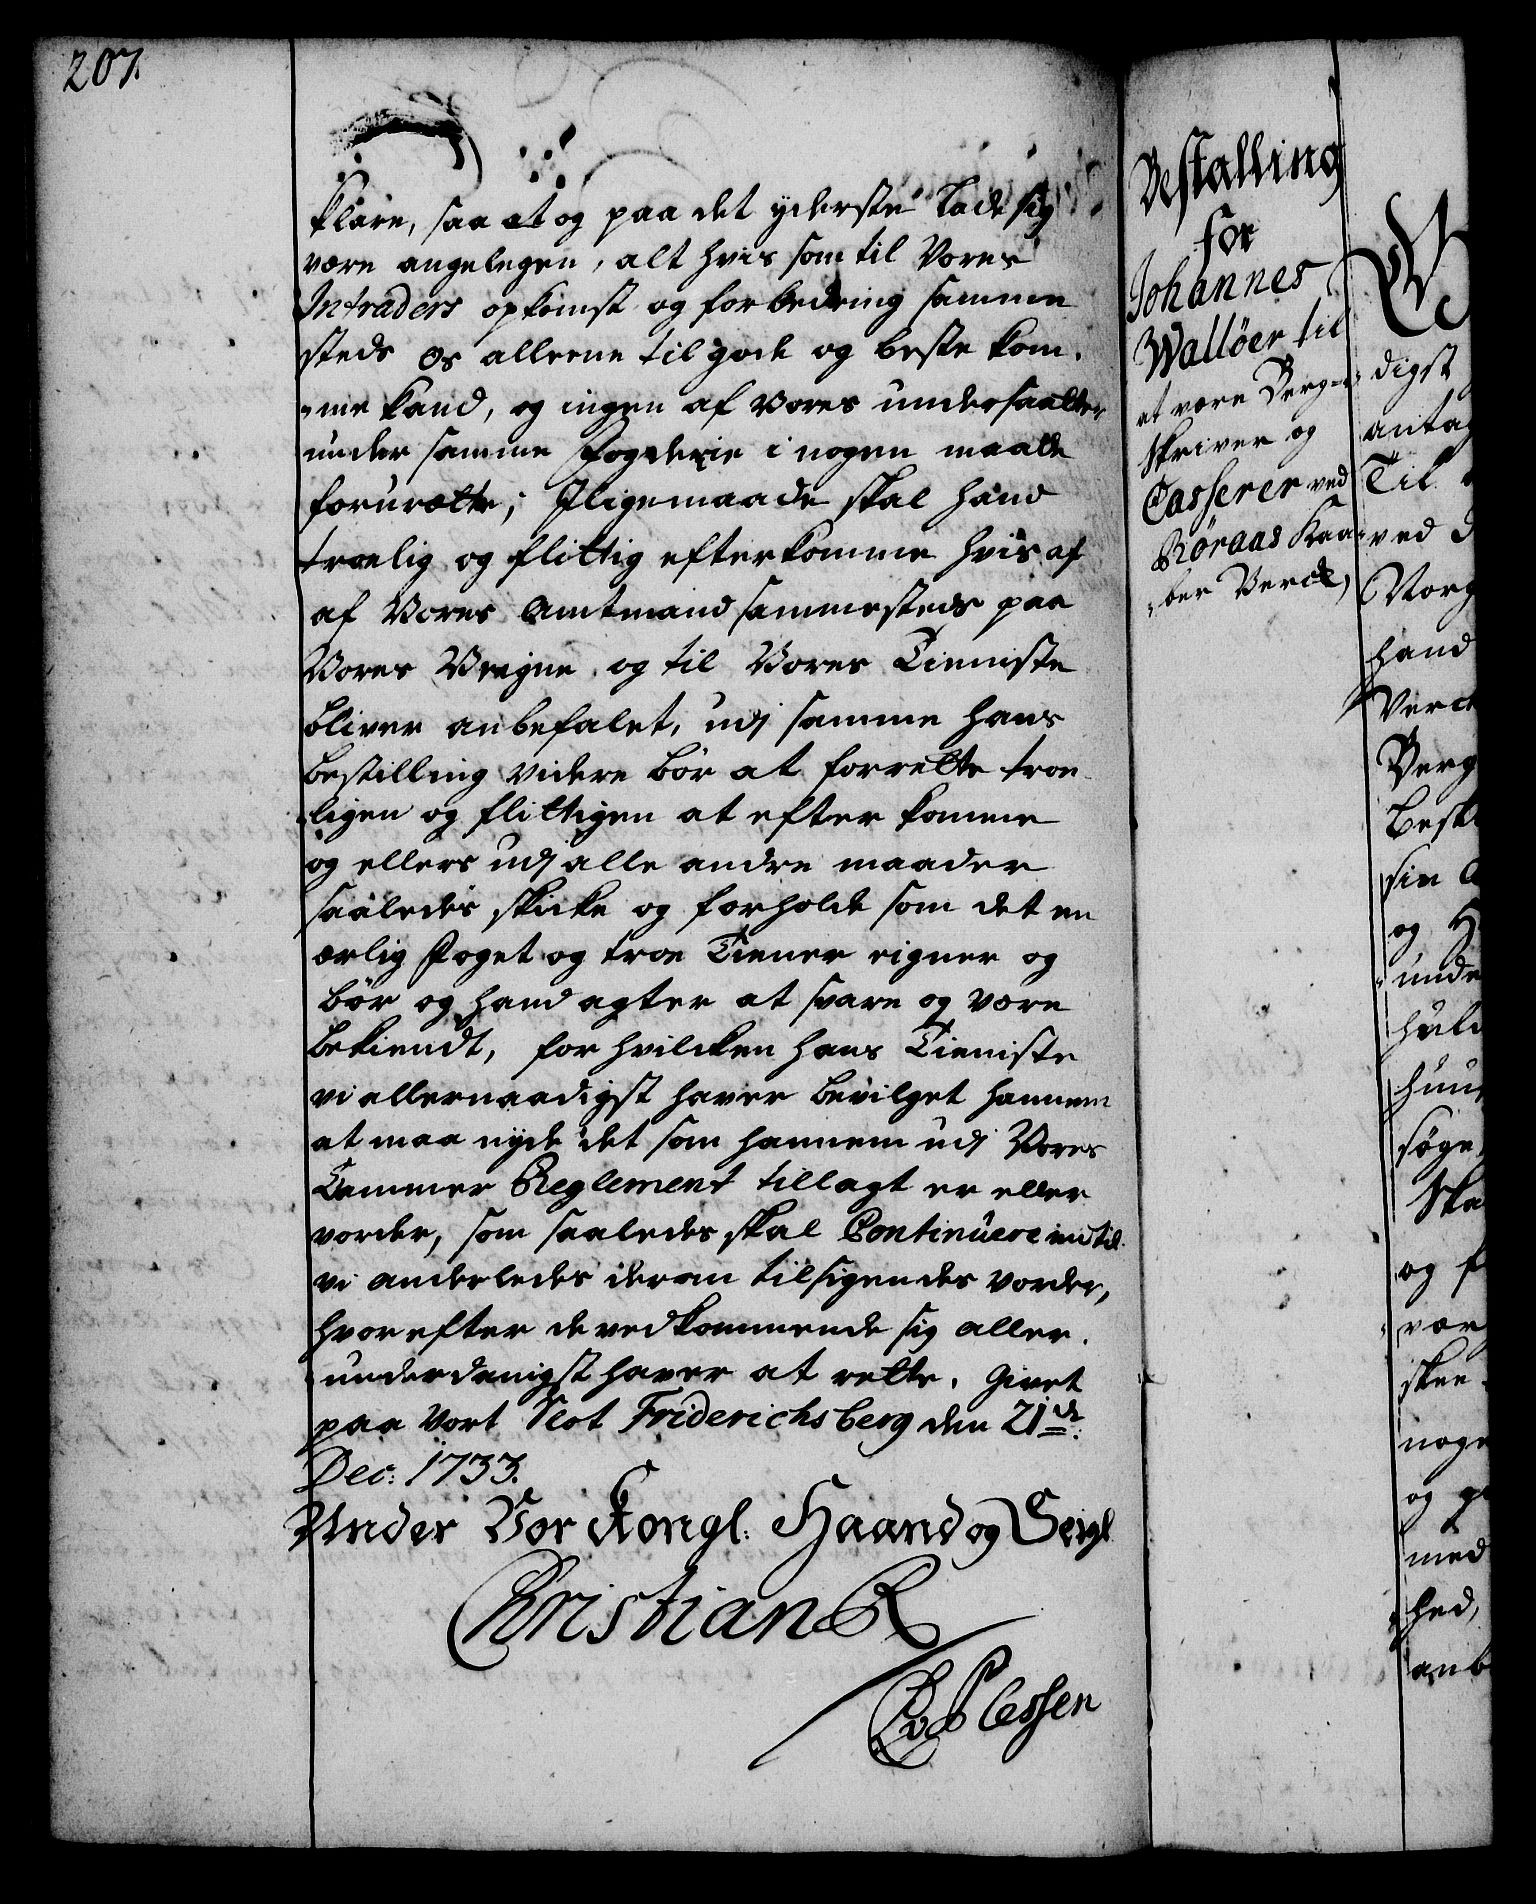 207.
klare, saa at og paa det yderste lade sig
være angelegen, alt hvis som til Vores
Intraders opkomst og forbedring samme
steds Os allerene til gode og beste kom,
„me kand, og ingen af Vores undersaatter
under samme Fogderie i nogen maade
forurætte; Iligemaade skal hand
troelig og flittig efterkomme hvis af
af Vores Amtmand sammesteds paa
Vores Vegne og til Vores Tieniste
bliver anbefalet, udj samme hans
bestilling videre bør at forrette troe
„ligen og flittigen at efter komme
og ellers udj alle andre maader
saaledes skicke og forholde som det en
ærlig Foget og troe Tiener eigner og
bør og hand agter at svare og være
bekiendt, for hvilcken hans Tieniste
vi allernaadigst haver bevilget hannem
at maa nyde det som hannem udj Vores
Cammer Reglement tillagt er eller
vorder, som saaledes skal Continuere indtil
vi anderledes derom tilsigendes vorder,
hvorefter de vedkommende sig aller.
„underdanigst haver at rette. Givet
paa Vort Slot Friderichsberg den 21de
Dec: 1733.
Under Vor Kongl: Haand og Seigl
Christian R
CvPlessen
Bestalling
for
Johannes
Walløer til
at være Berg-
skriver og
Casserer ved
Røraas Kaa-
„ber Verck,
digst
antag
Til
ved D
Norg
hand
Verck
Berg
Besk
sin
og H
unde
huld
huus
søge,
Ska
og f
vær
skee
noge
og g
med
hed,
anb